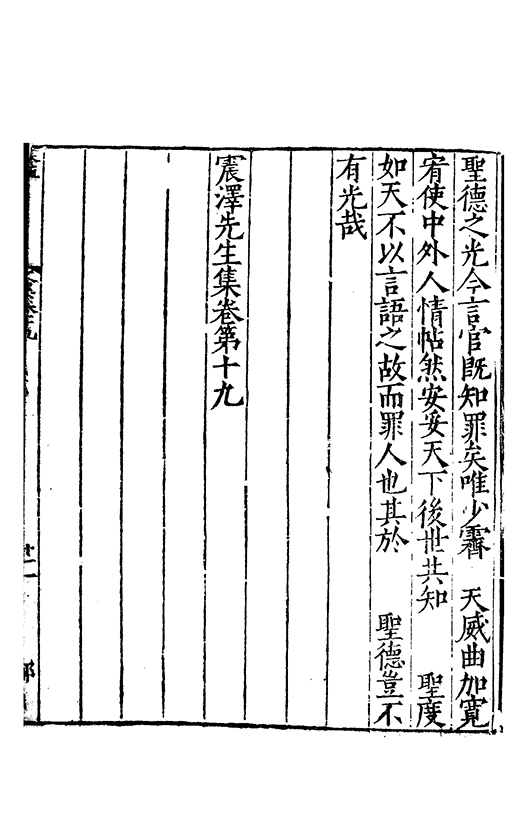 聖德之光今言官既知罪矣唯少霽　天威曲加寬
宥使中外人情帖然安妥天下後世共知　　聖度
如天不以言語之故而罪人也其於　　聖德豈不
有光哉
震澤先生集卷第十九